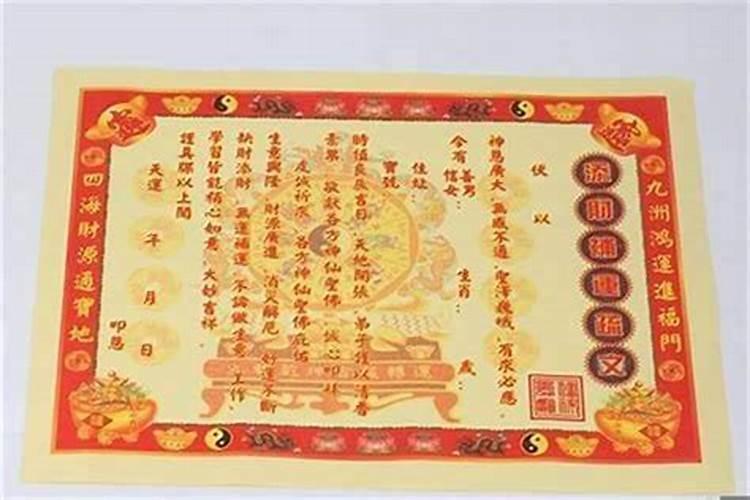 九洲鴻運進福門
添財補運疏文
伏以
神恩廣大 無感不通 聖澤巍峨 有求必應
今有善男信女 生肖 歲
住址
寶號
時值良辰吉日 天地開張 弟子謹以清香
素果 敬獻各方神仙聖佛 誠心叩拜
虔誠祈求 各方神仙聖佛庇佑
生意興隆 財源廣進 消災解厄 好運不斷
缺財添財 無運補運 不論做生意 工作
學習皆能稱心如意 大妙吉祥
謹具疏以上聞
天運 年 月 日
叩恩
四海財源通寶地